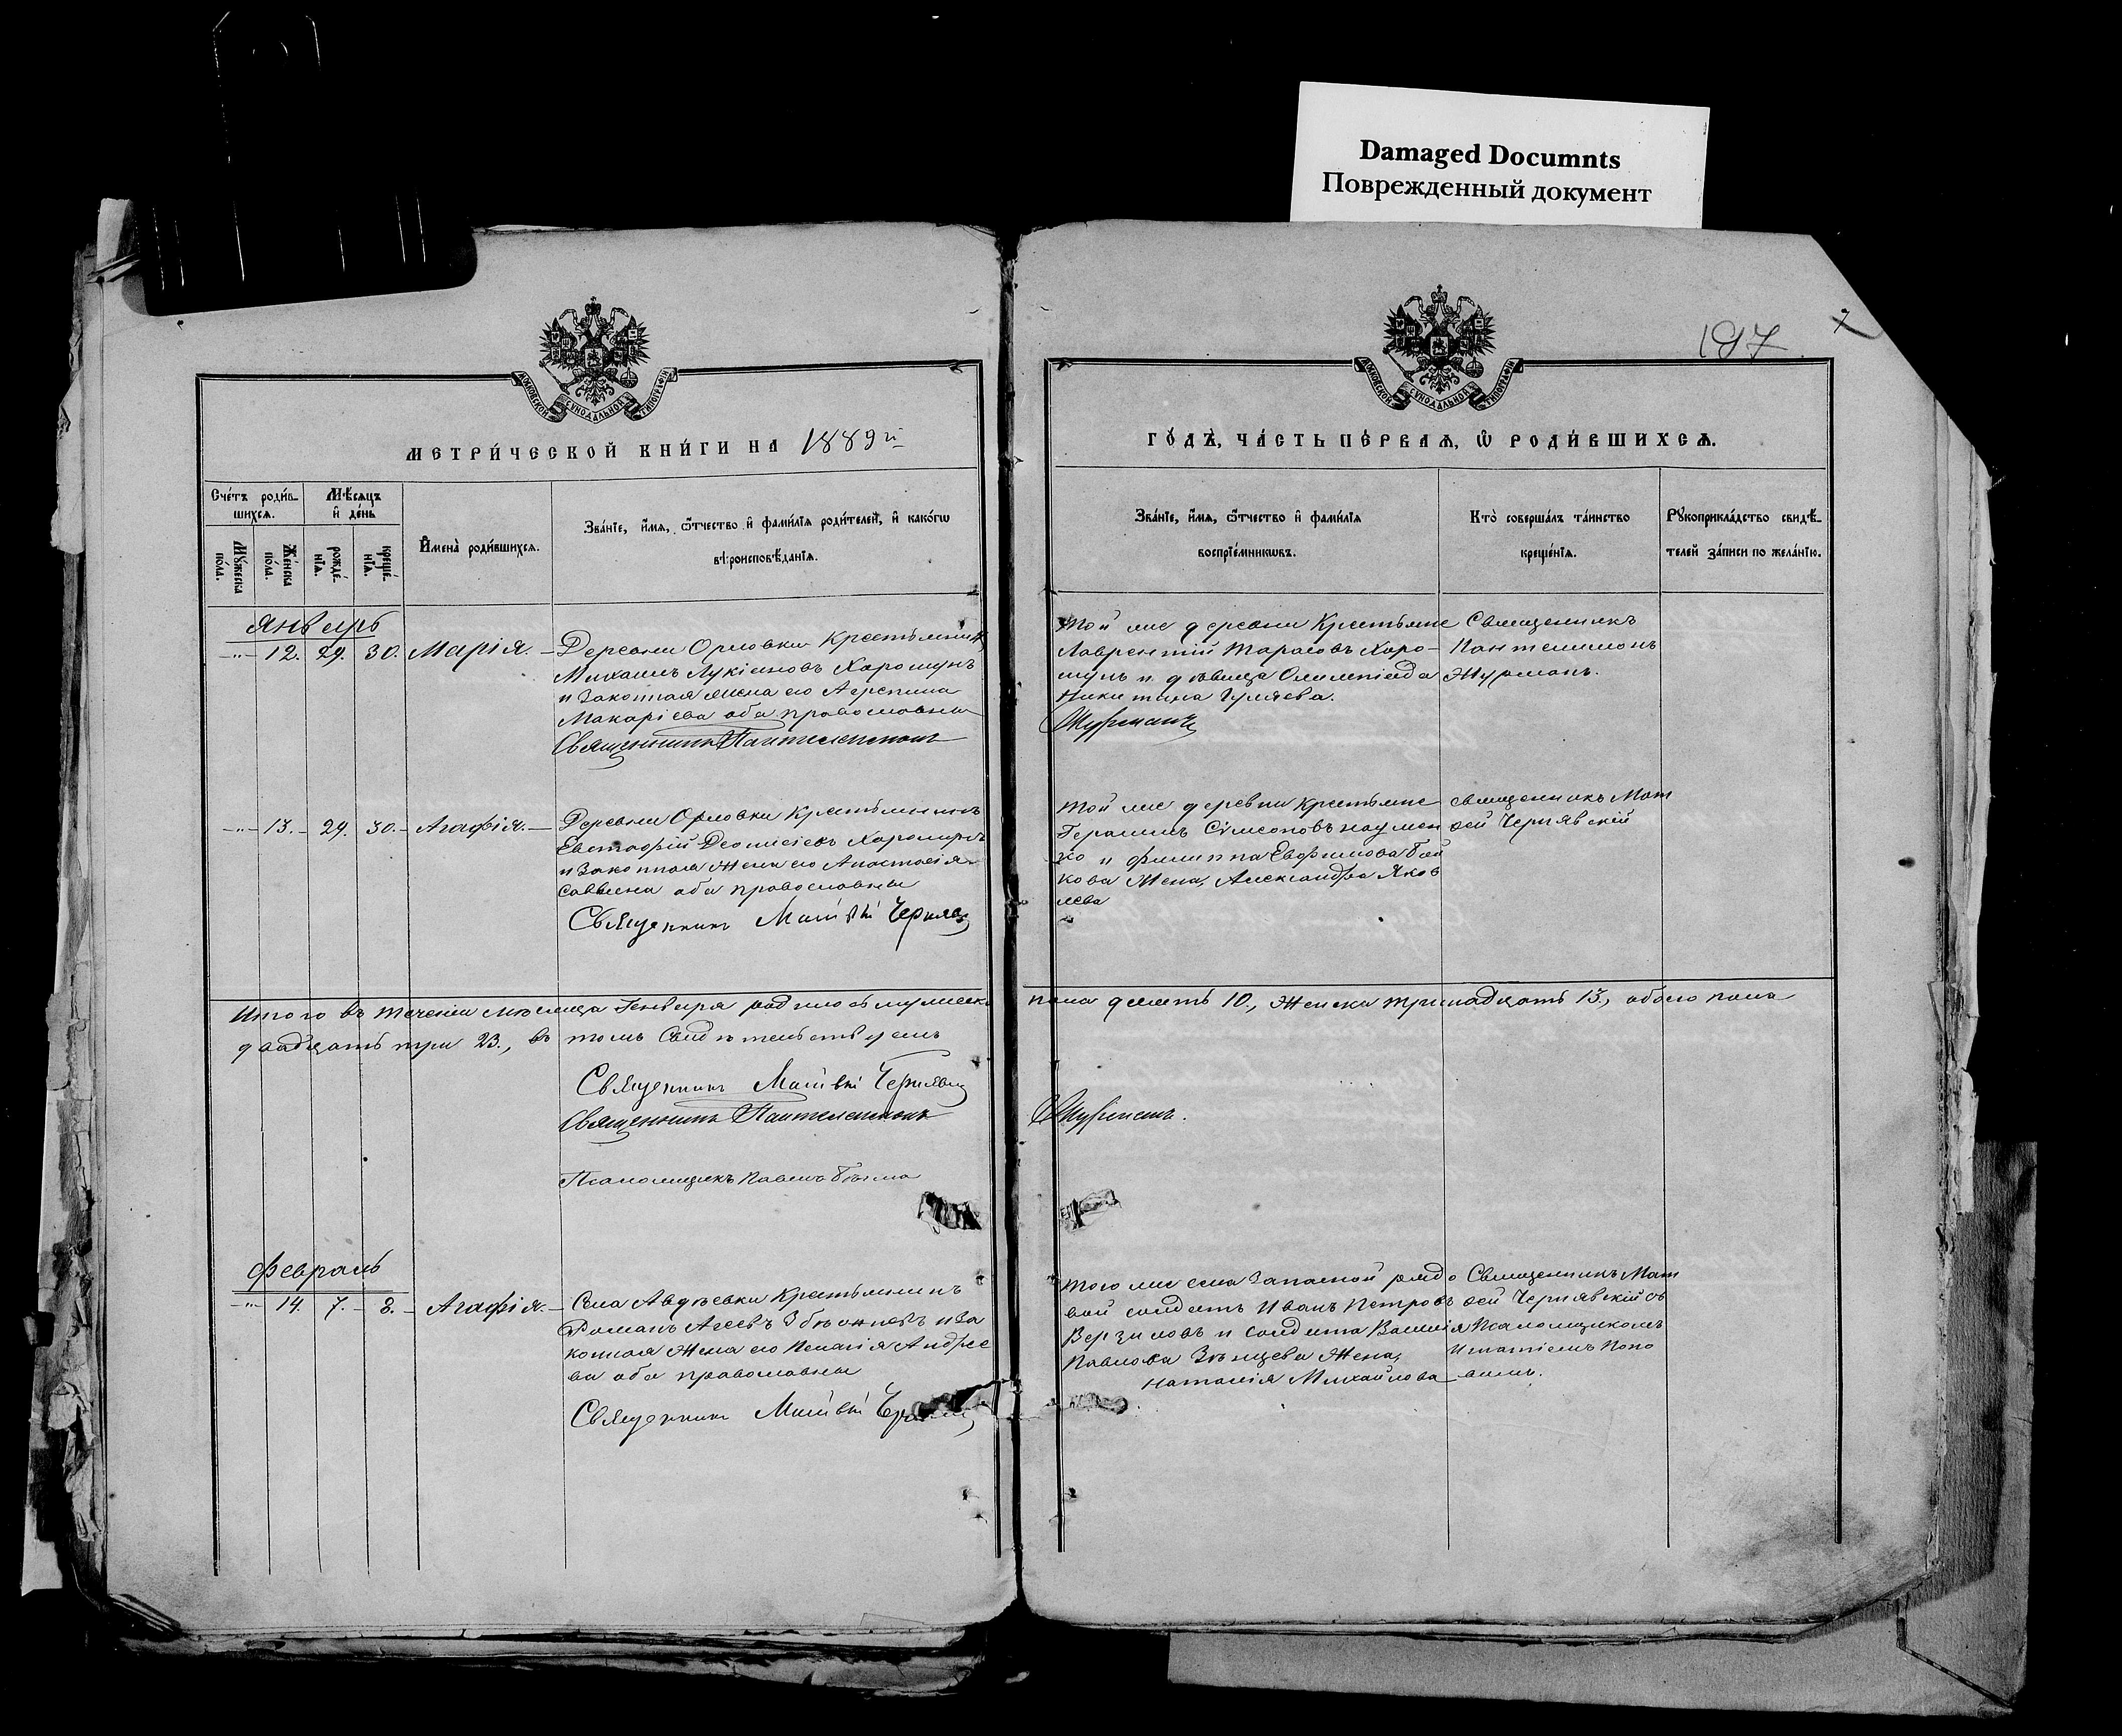 Damaged Documnts
Поврежденный документ
197
МОСКОВСКОЙ СѴНОДАЛЬНОЙ ТИПОГРАФІИ
МОСКОВСКОЙ СѴНОДАЛЬНОЙ ТИПОГРАФІИ
МЕТРИ́ЧЕСКОЙ КНИ́ГИ НА 1889й
ГО́ДЪ, ЧА́СТЬ ПЕ́РВАѦ, Ѡ РОДИ́ВШИХСѦ.
Сче́тъ роди́в-
шихсѧ.
Мѣ́сѧцъ
и҆ де́нь
Мꙋ́жеска по́ла.
Же́нска по́ла.
рожде́-нїѧ.
креще́-нїѧ.
И҆мена̀ роди́вшихсѧ.
Зва́нїе, и҆́мѧ, ѻ҆́тчество и҆ фами́лїѧ роди́телей, и҆ како́гѡ
вѣроисповѣ́данїѧ.
Зва́нїе, и҆́мѧ, ѻ҆́тчество и҆ фами́лїѧ
воспрїе́мникѡвъ.
Кто̀ соверша́лъ та́инство
креще́нїѧ.
Рꙋкоприкла́дство свидѣ́-
телей за́писи по жела́нїю.
Январь
12. 29. 30. Марія. Деревни Орловки Крестьянинъ
Михаилъ Лукіановъ Харошунъ
и законная жена его Агрепина
Макаріева оба православны
Священникъ Пантелеимонъ
Той же деревни Крестьяне
Лаврентій Тарасовъ Харо-
шунъ и дѣвица Олимпіада
Никитина Гуляева.
Журманъ
Священникъ
Пантелимонъ
Журманъ.
13. 29. 30. Агафія. Деревни Орловки Крестьянинъ
Евстафій Діонисіевъ Харошунъ
и законная жена его Анастасія
Саввина оба православны
Священникъ Матвѣй Чернявс
Той же деревни крестьяне
Герасимъ Сѵмеоновъ Наумен
ко и Филиппа Евфимова Бой
кова жена, Александра Яков
лева
Священникъ Мат
ѳей Чернявскій
Итого въ теченіи мѣсяца Генваря родилось мужеска пола десять 10., женска тринадцать 13., обоего пола
двадцать три 23., въ томъ свидѣтельствуемъ
Священникъ Матвѣй Чернявс
Священникъ Пантелеимонъ Журманъ.
Псаломщикъ Павелъ
Февраль
14. 7. 8. Агафія. Села Авдѣевки Крестьянинъ
Романъ Агеевъ и за
конная жена его Пелагія Андрее
ва оба православны
Священникъ Матвѣй
Того же села запасной рядо
вой солдатъ Иванъ Петровъ
Верзиловъ и солдата Василія
Павлова жена,
Наталія Михайлова
Священникъ Мат
ѳей Чернявскій съ
Псаломщикомъ
Игнатіемъ Попо
вымъ.